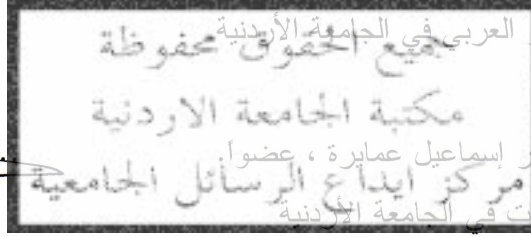 العربي في الجامعة الأردنية
جميع الحقوق محفوظة
مكتبة الجامعة الاردنية
إسماعيل عمايرة ، عضواً.
مركز ايداع الرسائل الجامعية
في الجامعة الأردنية